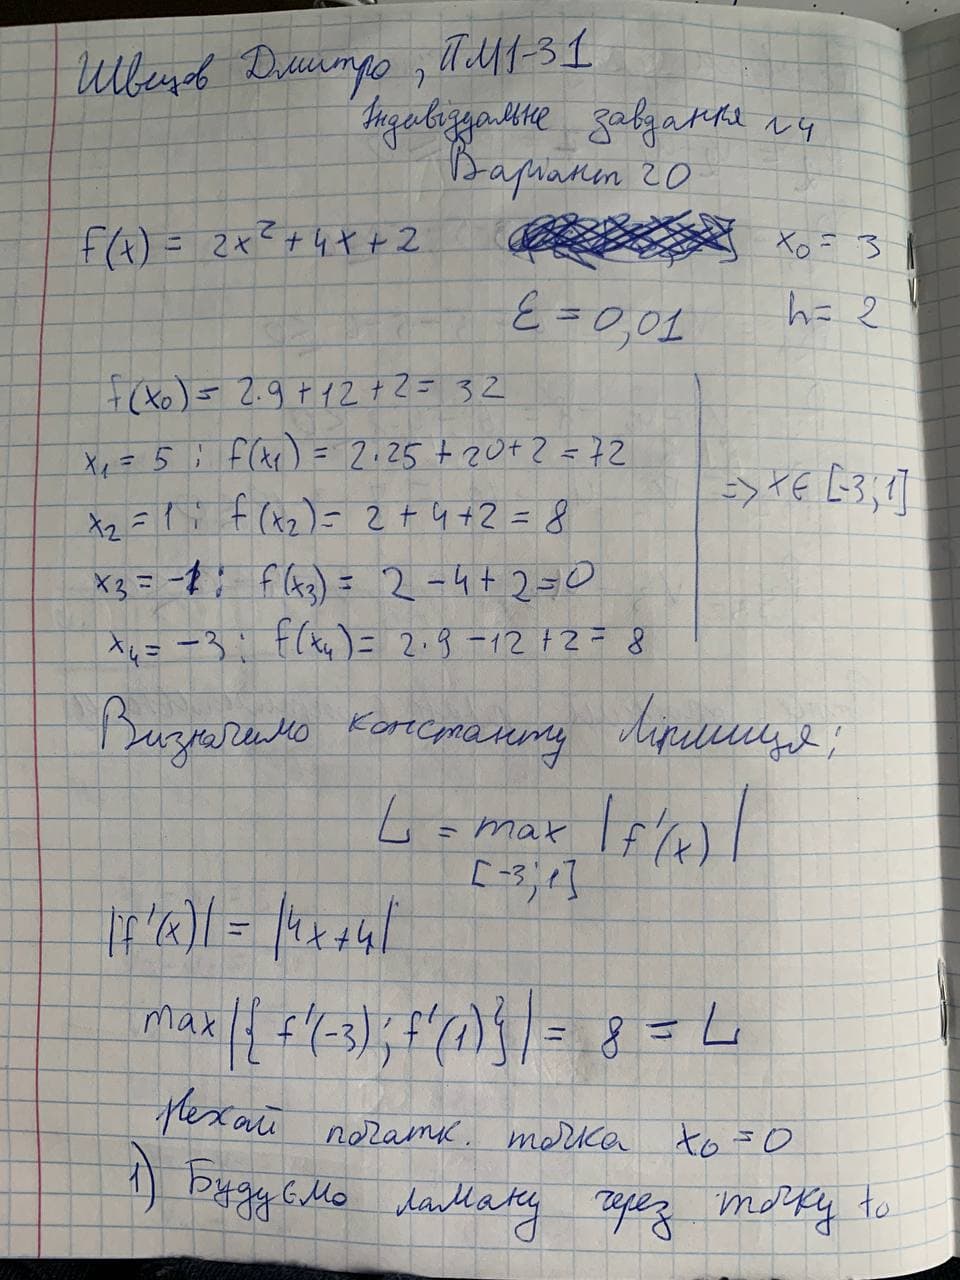 Швецов Дмитро, ПМ1-31
Індивідуальне завдання №4
Варіант 20
f(x) = 2x² + 4x + 2 x₀ = 3
ε = 0,01 h = 2
f(x₀) = 2·9 + 12 + 2 = 32
x₁ = 5 ; f(x₁) = 2·25 + 20 + 2 = 72
=> x ∈ [-3; 1]
x₂ = 1 ; f(x₂) = 2 + 4 + 2 = 8
x₃ = -1 ; f(x₃) = 2 - 4 + 2 = 0
x₄ = -3 ; f(x₄) = 2·9 - 12 + 2 = 8
Визначимо константу Ліпшиця;
L = max |f'(x)|
[-3; 1]
|f'(x)| = |4x + 4|
max |{f'(-3) ; f'(1)}| = 8 = L
Нехай початк. точка x₀ = 0
1) Будуємо ламану через точку t₀